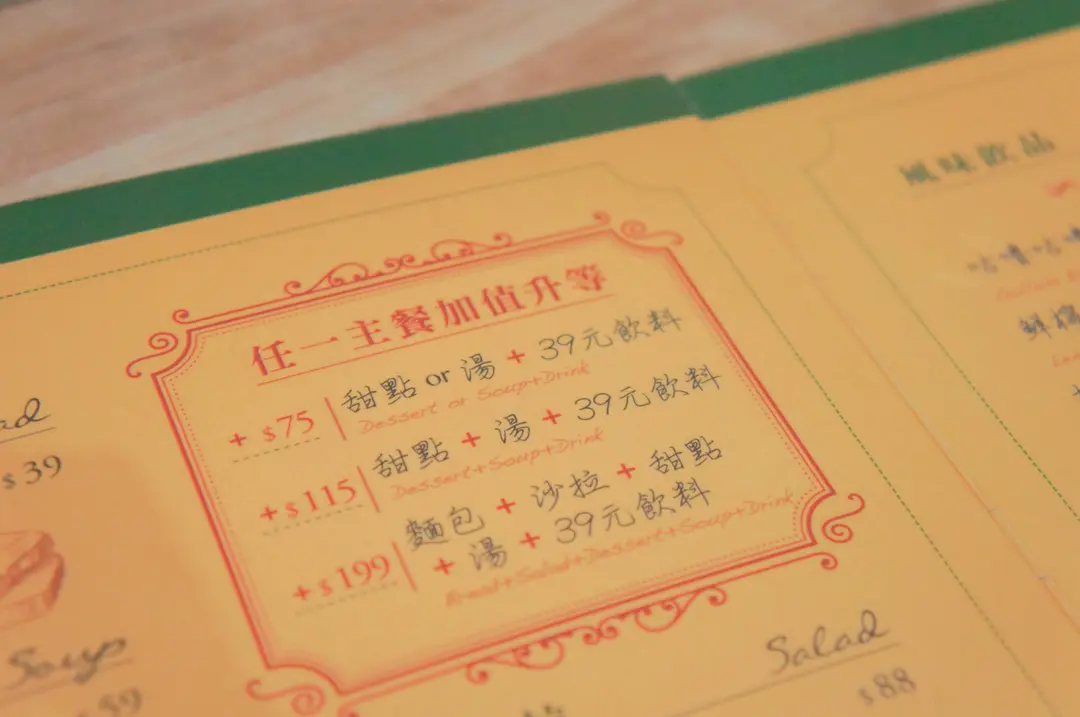 任一主餐加值升等
+ $75 甜點 or 湯 + 39元飲料
Dessert or Soup+Drink
+ $115 甜點 + 湯 + 39元飲料
Dessert+Soup+Drink
+ $199 麵包 + 沙拉 + 甜點
+ 湯 + 39元飲料
Bread+Salad+Dessert+Soup+Drink
$39
Soup
Salad
$88
風味飲品